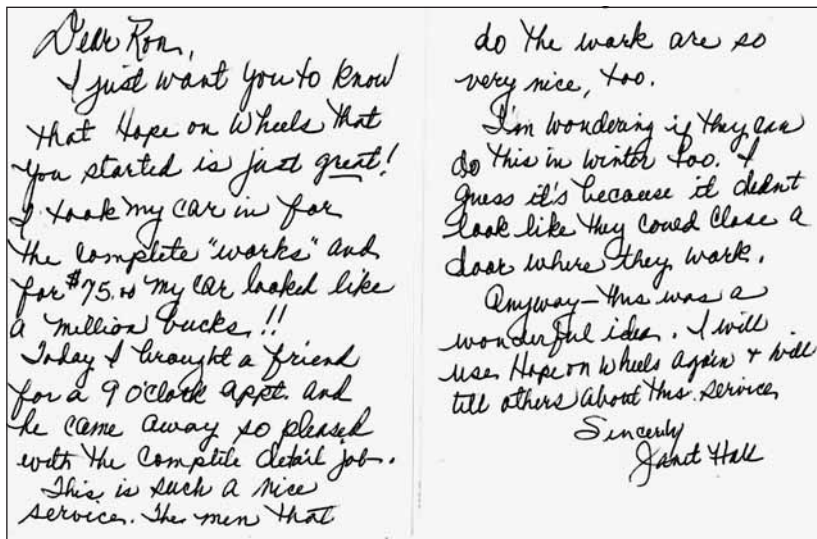 Dear Ron,
I just want you to know
that Hope on Wheels that
you started is just great!
I took my car in for
the complete "works" and
for $75.00 my car looked like
a million bucks!!
Today I brought a friend
for a 9 o'clock appt. and
he came away so pleased
with the complete detail job.
This is such a nice
service. The men that
do the work are so
very nice, too.
I'm wondering if they can
do this in winter too. I
guess it's because it didn't
look like they could close a
door where they work.
Anyway—this was a
wonderful idea. I will
use Hope on Wheels again + will
tell others about this service.
Sincerely
Janet Hall